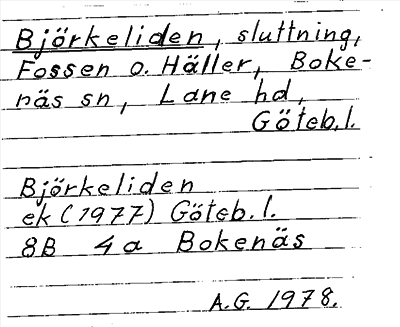 Björkeliden, sluttning,
Fossen o. Häller, Boke-
näs sn, Lane hd,
Göteb.l.
Björkeliden
ek (1977) Göteb. l.
8B 4a Bokenäs
A.G. 1978.